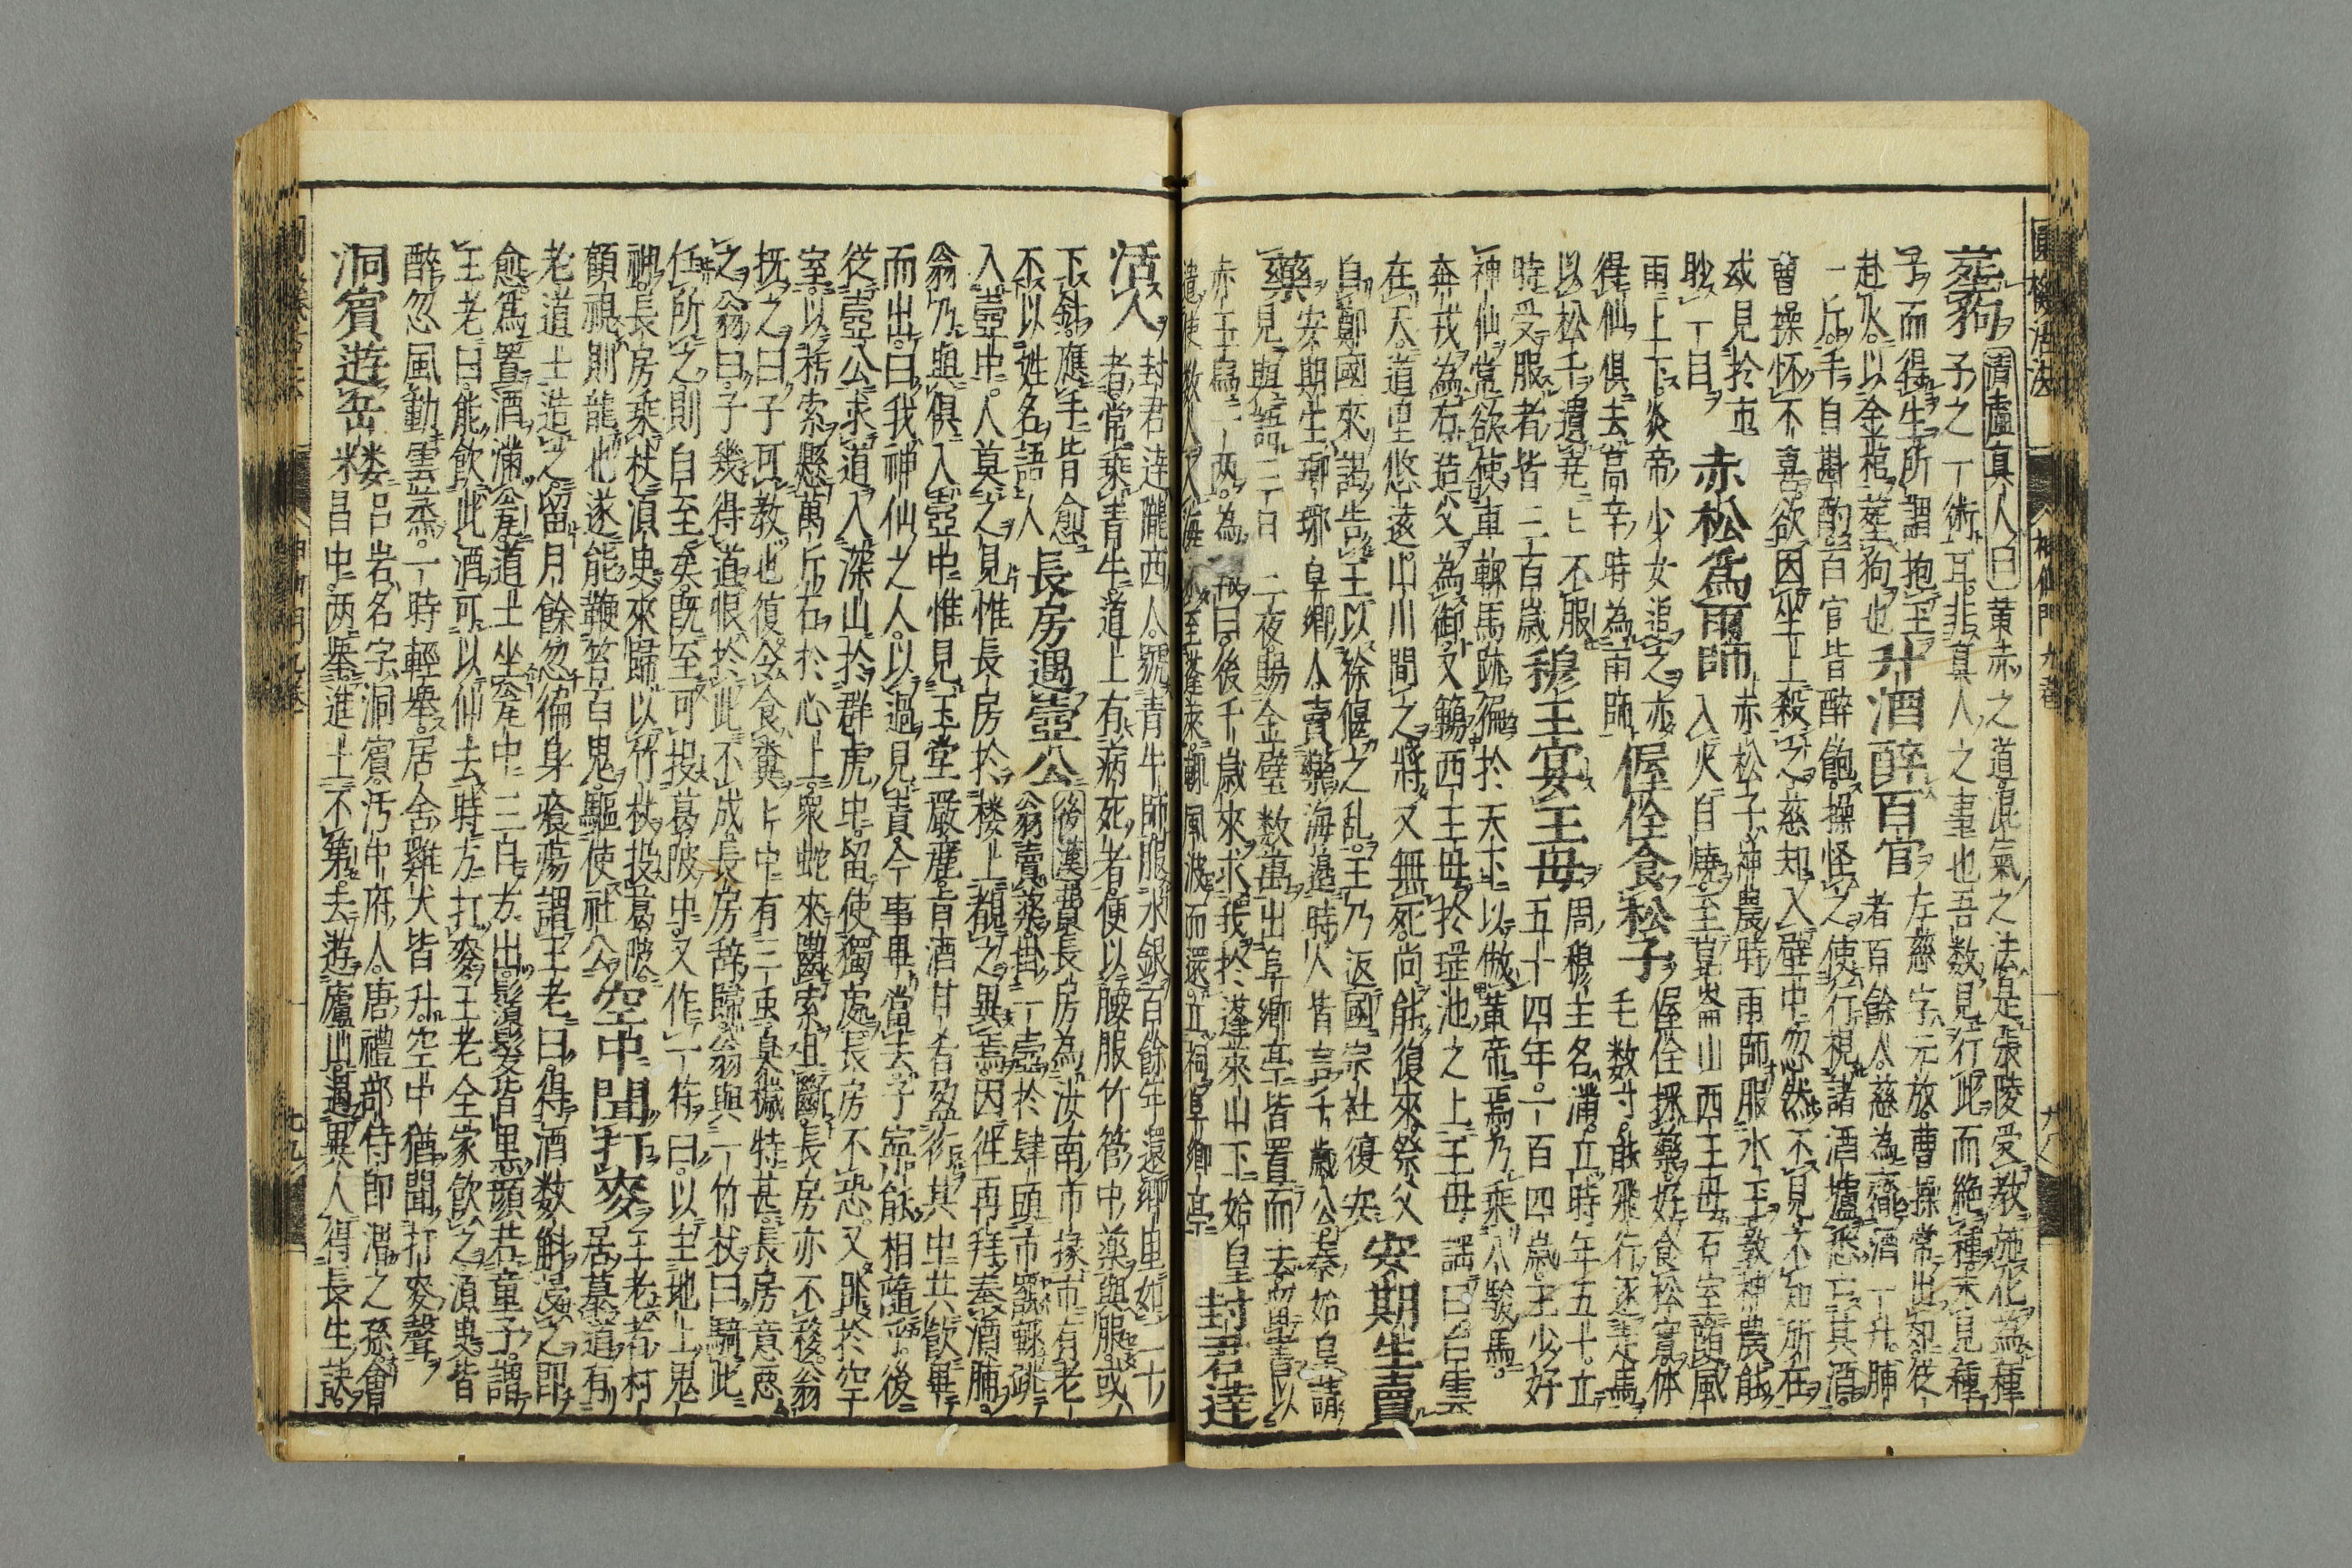 圓機活法 神仙門 九卷 十八
葬狗
清廬真人曰黄赤之道混氣之法是張陵受教施化為種
子之一術耳非真人之事也吾数見行此而絶種未見種
子而得生所謂抱玉
赴火以金棺葬狗也
升酒醉百官
左慈字元放曹操常出郊從
者百餘人慈為齎酒一升脯
一斤手自斟酌百官皆醉飽操怪之使行視諸酒壚悉亡其酒
曹操怀不喜欲因坐上殺之慈却入壁中忽然不見不知所在
或見於市
眇一目
赤松為雨師
赤松子神農時雨師服水玉教神農能
入火自燒至崑崙山西王母石室随風
雨上下炎帝少女追之亦
得仙俱去高辛時為雨師
偓佺食松子
偓佺採藥好食松實体
毛数寸能飛行逐走馬
以松子遺堯〻不服
時受服者皆三百歳
穆王宴王母
周穆王名滿立時年五十立
五十四年一百四歳王少好
神仙常欲使車轍馬跡徧於天下以倣黄帝焉乃乘八駿馬
奔戎為右造父為御又觴西王母於瑶池之上王母謡曰白雲
在天道里悠遠山川間之將又無死尚能復來祭父
自鄭國來謁告王以徐偃之乱王乃返國宗社復安
安期生賣
藥
安期生瑯琊阜鄉人賣藥海邊時人皆言千歳公秦始皇請
見與語三日三夜賜金璧数萬出阜鄉亭皆置而去留書以
赤玉舄一両為報曰後千歳來求我於蓬萊山下始皇
遣使数人入海未至蓬萊輒風波而還立祠阜鄉亭
封君達
活人
封君達隴西人號青牛師服水銀百餘年還鄉里如二十
者常乘青牛道上有病死者便以腰服竹管中薬與服或
下針應手皆愈
不以姓名語人
長房遇壺公
後漢費長房為汝南市掾市有老
翁賣薬掛一壺於肆頭市罷輒跳
入壺中人莫之見惟長房於楼上覩之異焉因徃再拜奉酒脯
翁乃與俱入壺中惟見玉堂嚴麗旨酒甘肴盈衍其中共飲畢
而出曰我神仙之人以過見責今事畢當去子寧能相隨乎後
従壺公求道入深山於群虎中留使獨處長房不恐又臥於空
室以朽索懸萬斤石於心上衆蛇來齧索且斷長房亦不移翁
抚之曰子可教也復令食糞〻中有三虫臭穢特甚長房意悪
之翁曰子幾得道恨於此不成長房辞歸翁與一竹杖曰騎此
任所之則自至矣既至可投葛陂中又作一符曰以主地上鬼
神長房乘杖須臾來歸以竹杖投葛陂
顧視則龍也遂能鞭笞百鬼驅使社公
空中聞打麥
王老者村
居墓道有
老道士造之留月餘忽徧身瘡瘍謂王老曰得酒数斛浸之即
愈為置酒滿瓮道士坐瓮中三日方出鬚髮皆黒顔若童子謂
王老曰能飲此酒可以仙去時方打麥王老全家飲之須臾皆
醉忽風動雲蒸一時輕舉居舍雞犬皆升空中猶聞打麥聲
洞賓遊岳楼
呂岩名字洞賓河中府人唐禮部侍郎渭之孫會
昌中両舉進士不第去遊廬山遇異人得長生訣
神仙門 九卷 十九